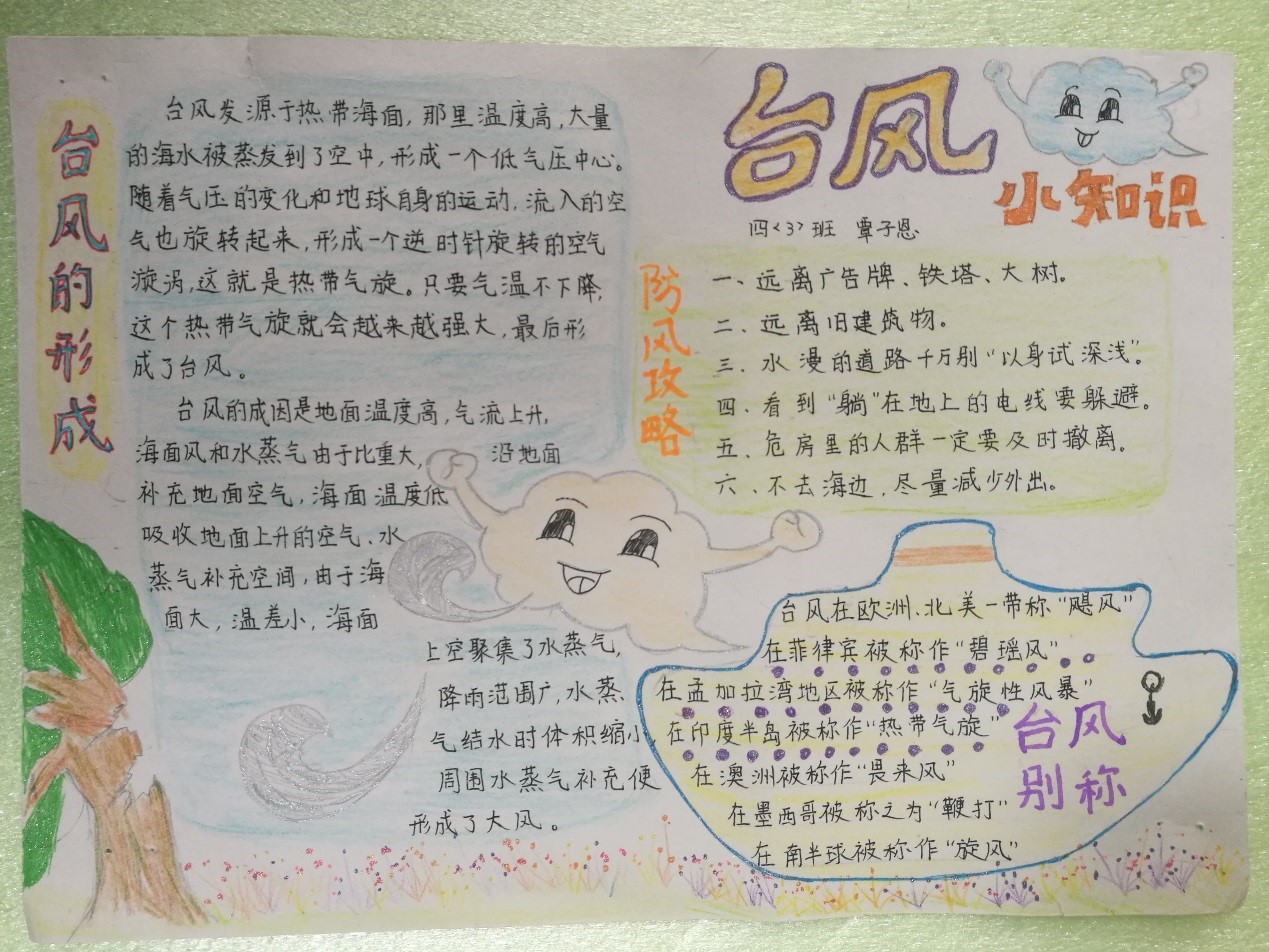 台风
小知识
四<3>班 覃子恩
台风的形成
台风发源于热带海面,那里温度高,大量
的海水被蒸发到了空中,形成一个低气压中心。
随着气压的变化和地球自身的运动,流入的空
气也旋转起来,形成一个逆时针旋转的空气
漩涡,这就是热带气旋。只要气温不下降,
这个热带气旋就会越来越强大,最后形
成了台风。
台风的成因是地面温度高,气流上升,
海面风和水蒸气由于比重大, 沿地面
补充地面空气,海面温度低
吸收地面上升的空气、水
蒸气补充空间,由于海
面大,温差小,海面
上空聚集了水蒸气,
降雨范围广,水蒸、
气结水时体积缩小
周围水蒸气补充便
形成了大风。
防风攻略
一、远离广告牌、铁塔、大树。
二、远离旧建筑物。
三、水漫的道路千万别“以身试深浅”。
四、看到“躺”在地上的电线要躲避。
五、危房里的人群一定要及时撤离。
六、不去海边,尽量减少外出。
台风在欧洲、北美一带称“飓风”
在菲律宾被称作“碧瑶风”
在孟加拉湾地区被称作“气旋性风暴”
在印度半岛被称作“热带气旋”
在澳洲被称作“畏来风”
在墨西哥被称之为“鞭打”
在南半球被称作“旋风”
台风
别称